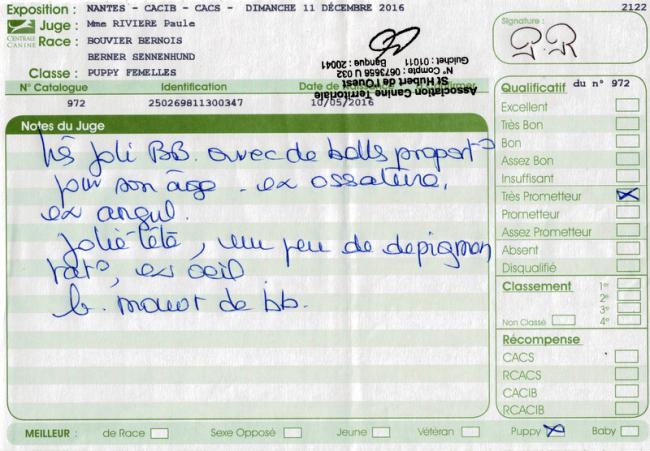 Exposition : NANTES - CACIB - CACS - DIMANCHE 11 DÉCEMBRE 2016
2122
CENTRALE CANINE
Juge : Mme RIVIERE Paule
Race : BOUVIER BERNOIS
BERNER SENNENHUND
Classe : PUPPY FEMELLES
Association Canine Territoriale
St Hubert de l'Ouest
N° Compte : 0673656 U 032
Guichet : 11011 - Banque : 20041
Signature :
N° Catalogue Identification Date de
972 250269811300347 10/05/2016
Notes du Juge
très joli BB. avec de belles proport°
pour son âge - ex ossature,
ex angul.
jolie tête, un peu de dépigmen
tat°, ex oeil
b. mouvt de bb.
Qualificatif du n° 972
Excellent
Très Bon
Bon
Assez Bon
Insuffisant
Très Prometteur X
Prometteur
Assez Prometteur
Absent
Disqualifié
Classement 1er
2e
3e
Non Classé 4e
Récompense
CACS
RCACS
CACIB
RCACIB
MEILLEUR : de Race Sexe Opposé Jeune Vétéran Puppy X Baby